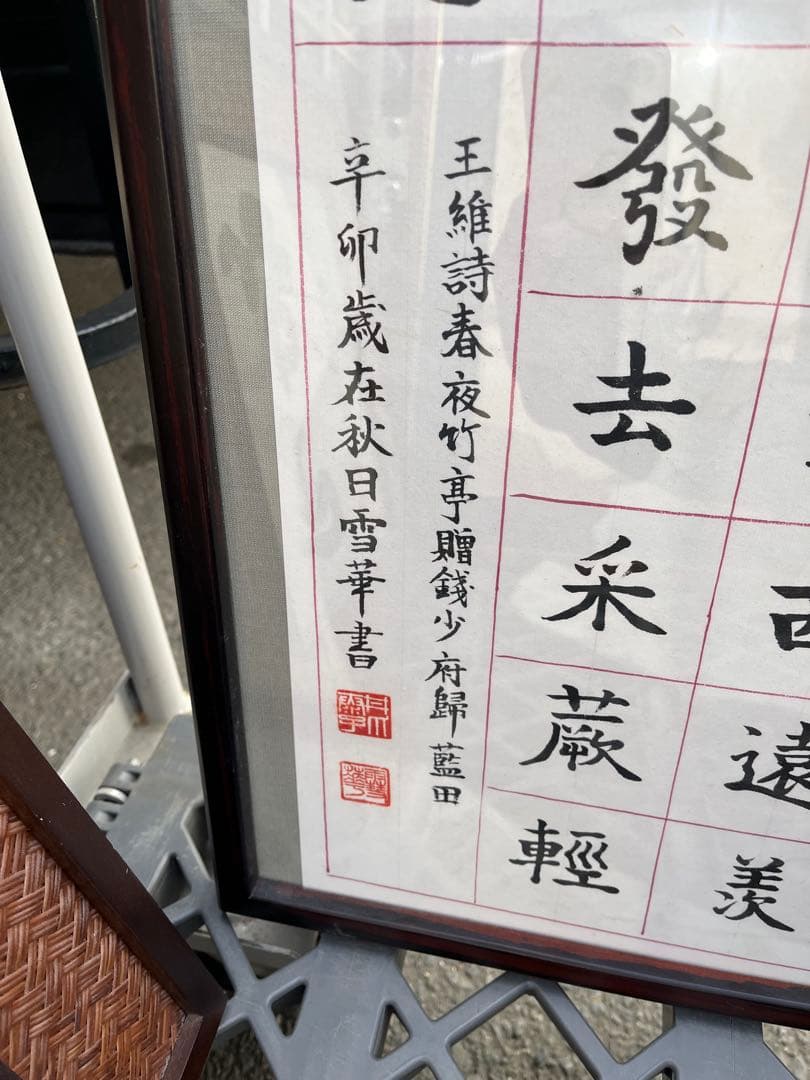 遠羨
發去采蕨輕
王維詩春夜竹亭贈錢少府歸藍田
辛卯歲在秋日雪華書
雪華